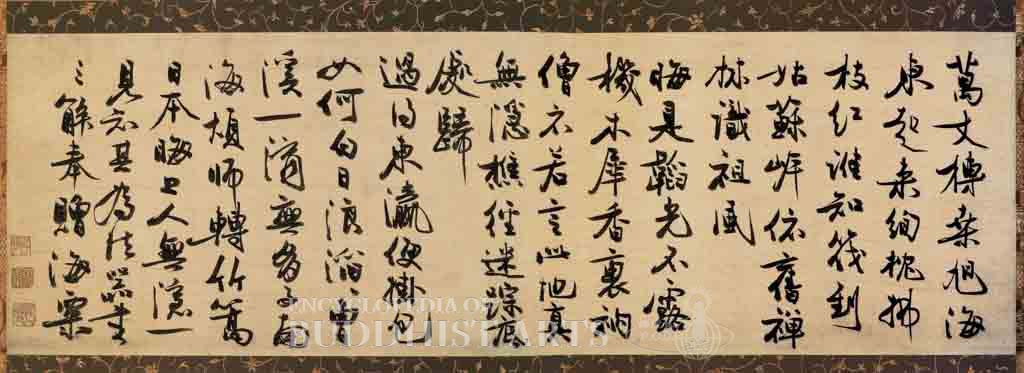 萬丈榑桑旭海
東起來絢桅拂
枝紅誰知筏到
姑蘇岸依舊禪
林識祖風
晦是韜光不露
機木犀香裏衲
僧衣若言此地真
無隱樵徑迷踪底
處歸
過得東瀛便掛包
如何白日浪滔曹
溪一滴無多子航
海煩師轉竹篙
日本晦上人無隱一
見知其為法器書
三解奉贈 海粟
ENCYCLOPEDIA OF
BUDDHIST ARTS